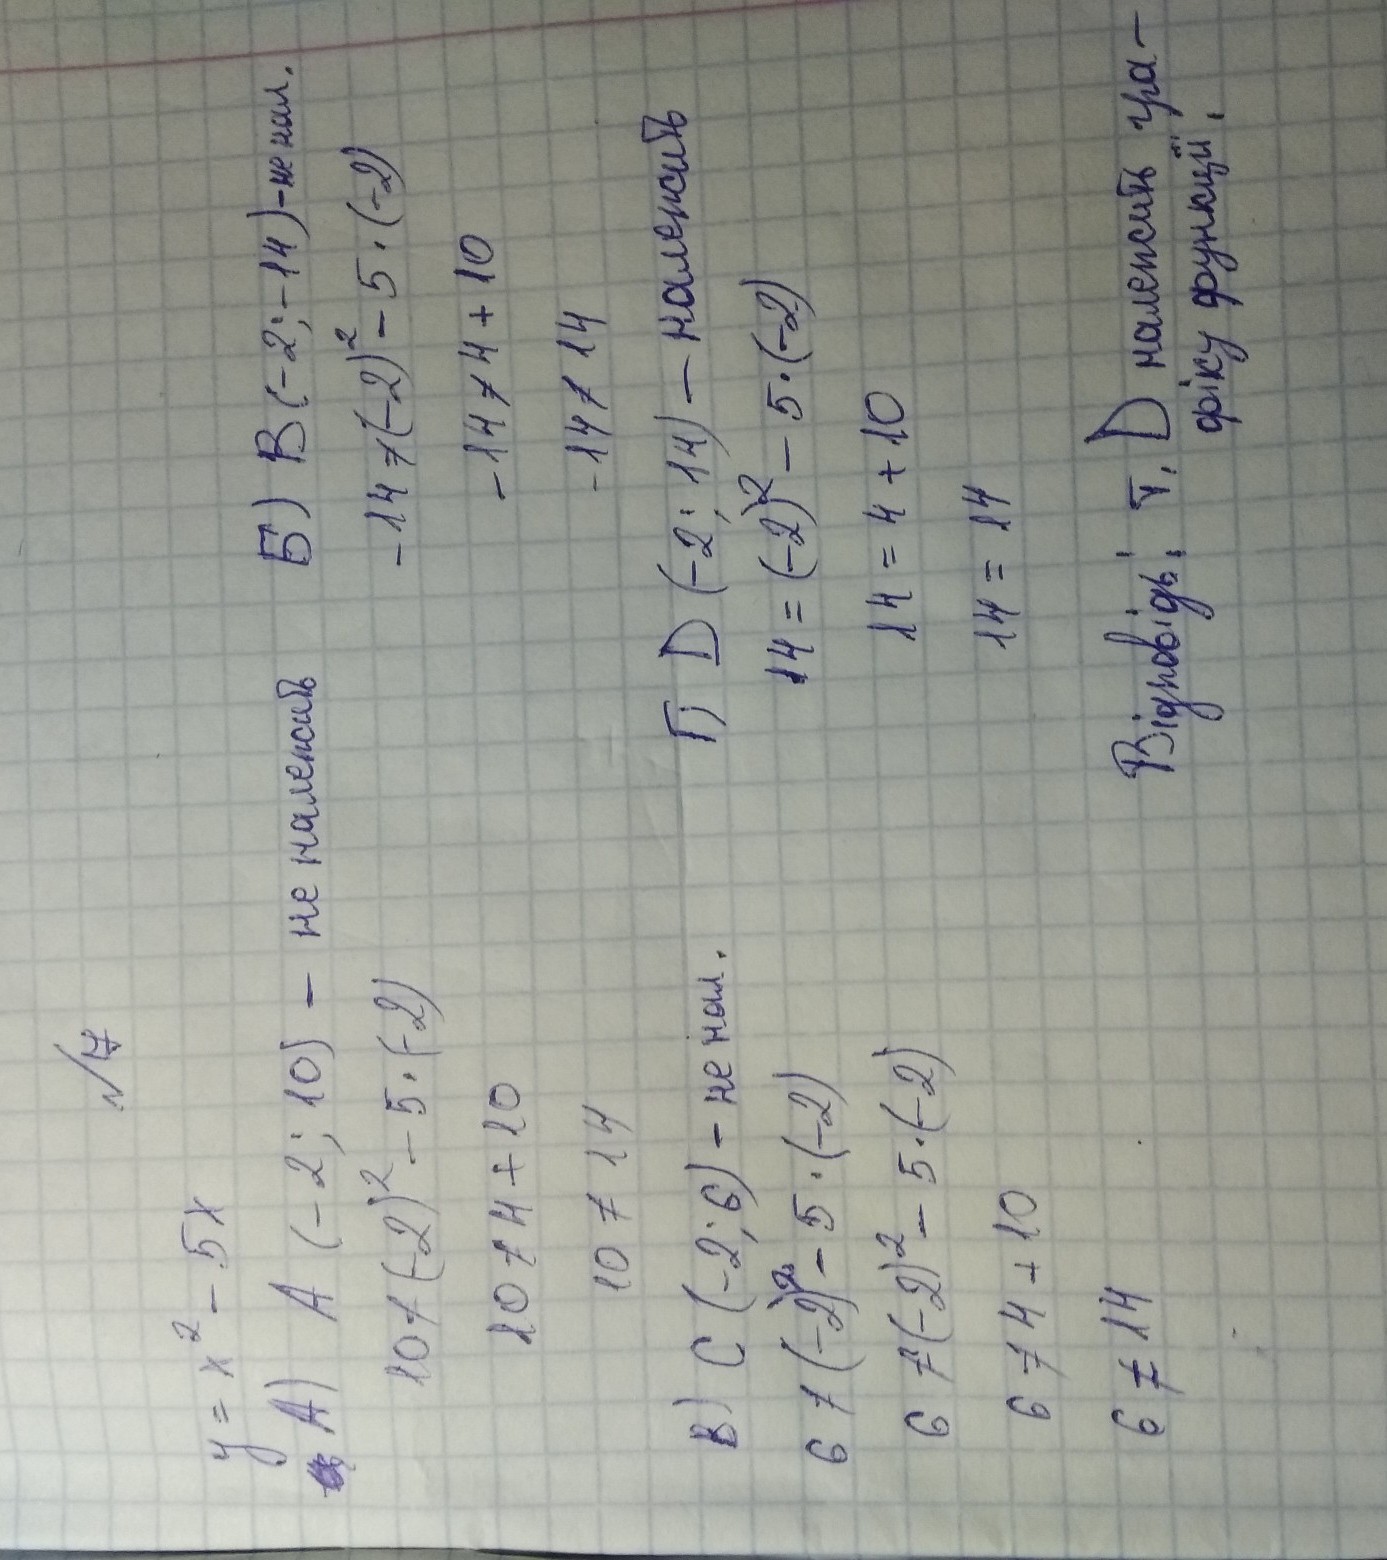 №17
y = x² - 5x
А) A (-2; 10) - не належить
10 ≠ (-2)² - 5·(-2)
10 ≠ 4 + 10
10 ≠ 14
Б) B (-2; -14) - не нал.
-14 ≠ (-2)² - 5·(-2)
-14 ≠ 4 + 10
-14 ≠ 14
В) C (-2; 6) - не нал.
6 ≠ (-2)² - 5·(-2)
6 ≠ (-2)² - 5·(-2)
6 ≠ 4 + 10
6 ≠ 14
Г) D (-2; 14) - належить
14 = (-2)² - 5·(-2)
14 = 4 + 10
14 = 14
Відповідь: т. D належить гра-
фіку функції.